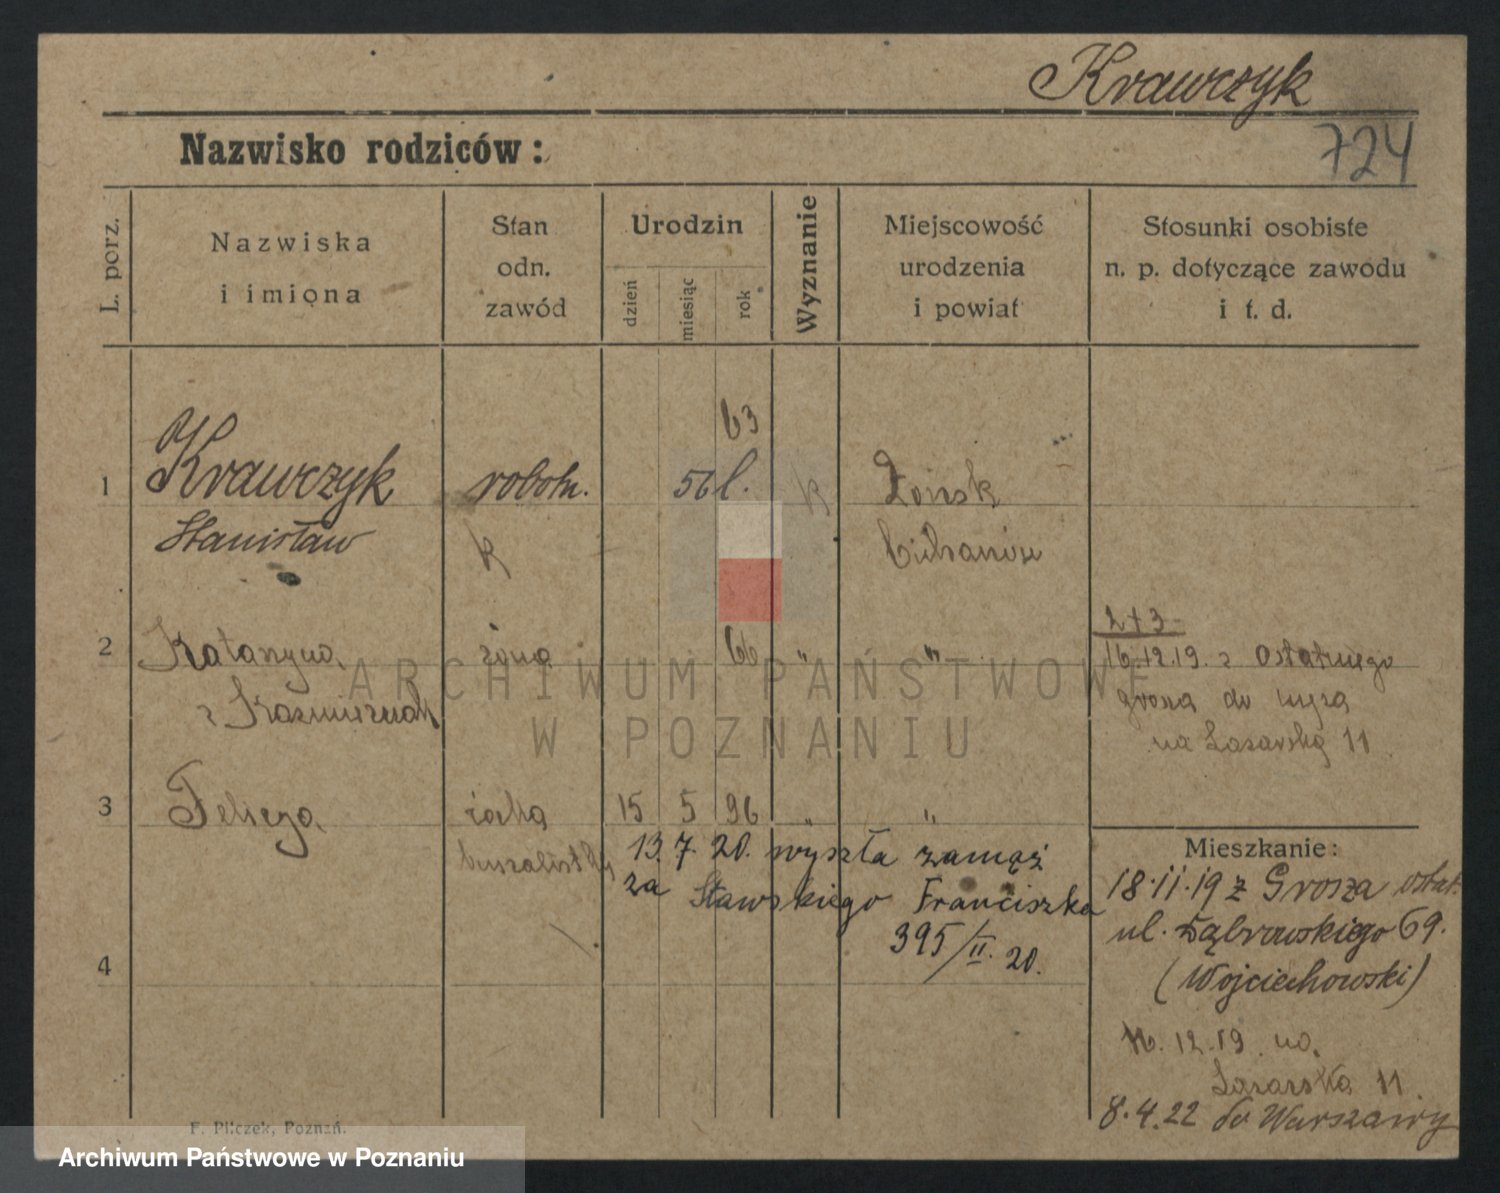 Krawczyk
724
Nazwisko rodziców:
L. porz.
Nazwiska
i imiona
Stan
odn.
zawód
Urodzin
dzień
miesiąc
rok
Wyznanie
Miejscowość
urodzenia
i powiat
Stosunki osobiste
n. p. dotyczące zawodu
i t. d.
63
1 Krawczyk robotn. 56 l. k
Stanisław k
2 + 3
2 Katarzyna żona 66 " "
16.12.19. z Ostatniego
z Kaźmierczak
grosza do
na Łazarską 11
3 Felicja córka 15 5 96 " "
13.7.20. wyszła zamąż
za Sławskiego Franciszka
395/II.20.
4
Mieszkanie:
18.11.19 z Grosza ostat.
ul. Dąbrowskiego 69.
(Wojciechowski)
16.12.19. na
Łazarska 11
8.4.22 do Warszawy
F. Pilczek, Poznań.
ARCHIWUM PAŃSTWOWE
W POZNANIU
Archiwum Państwowe w Poznaniu